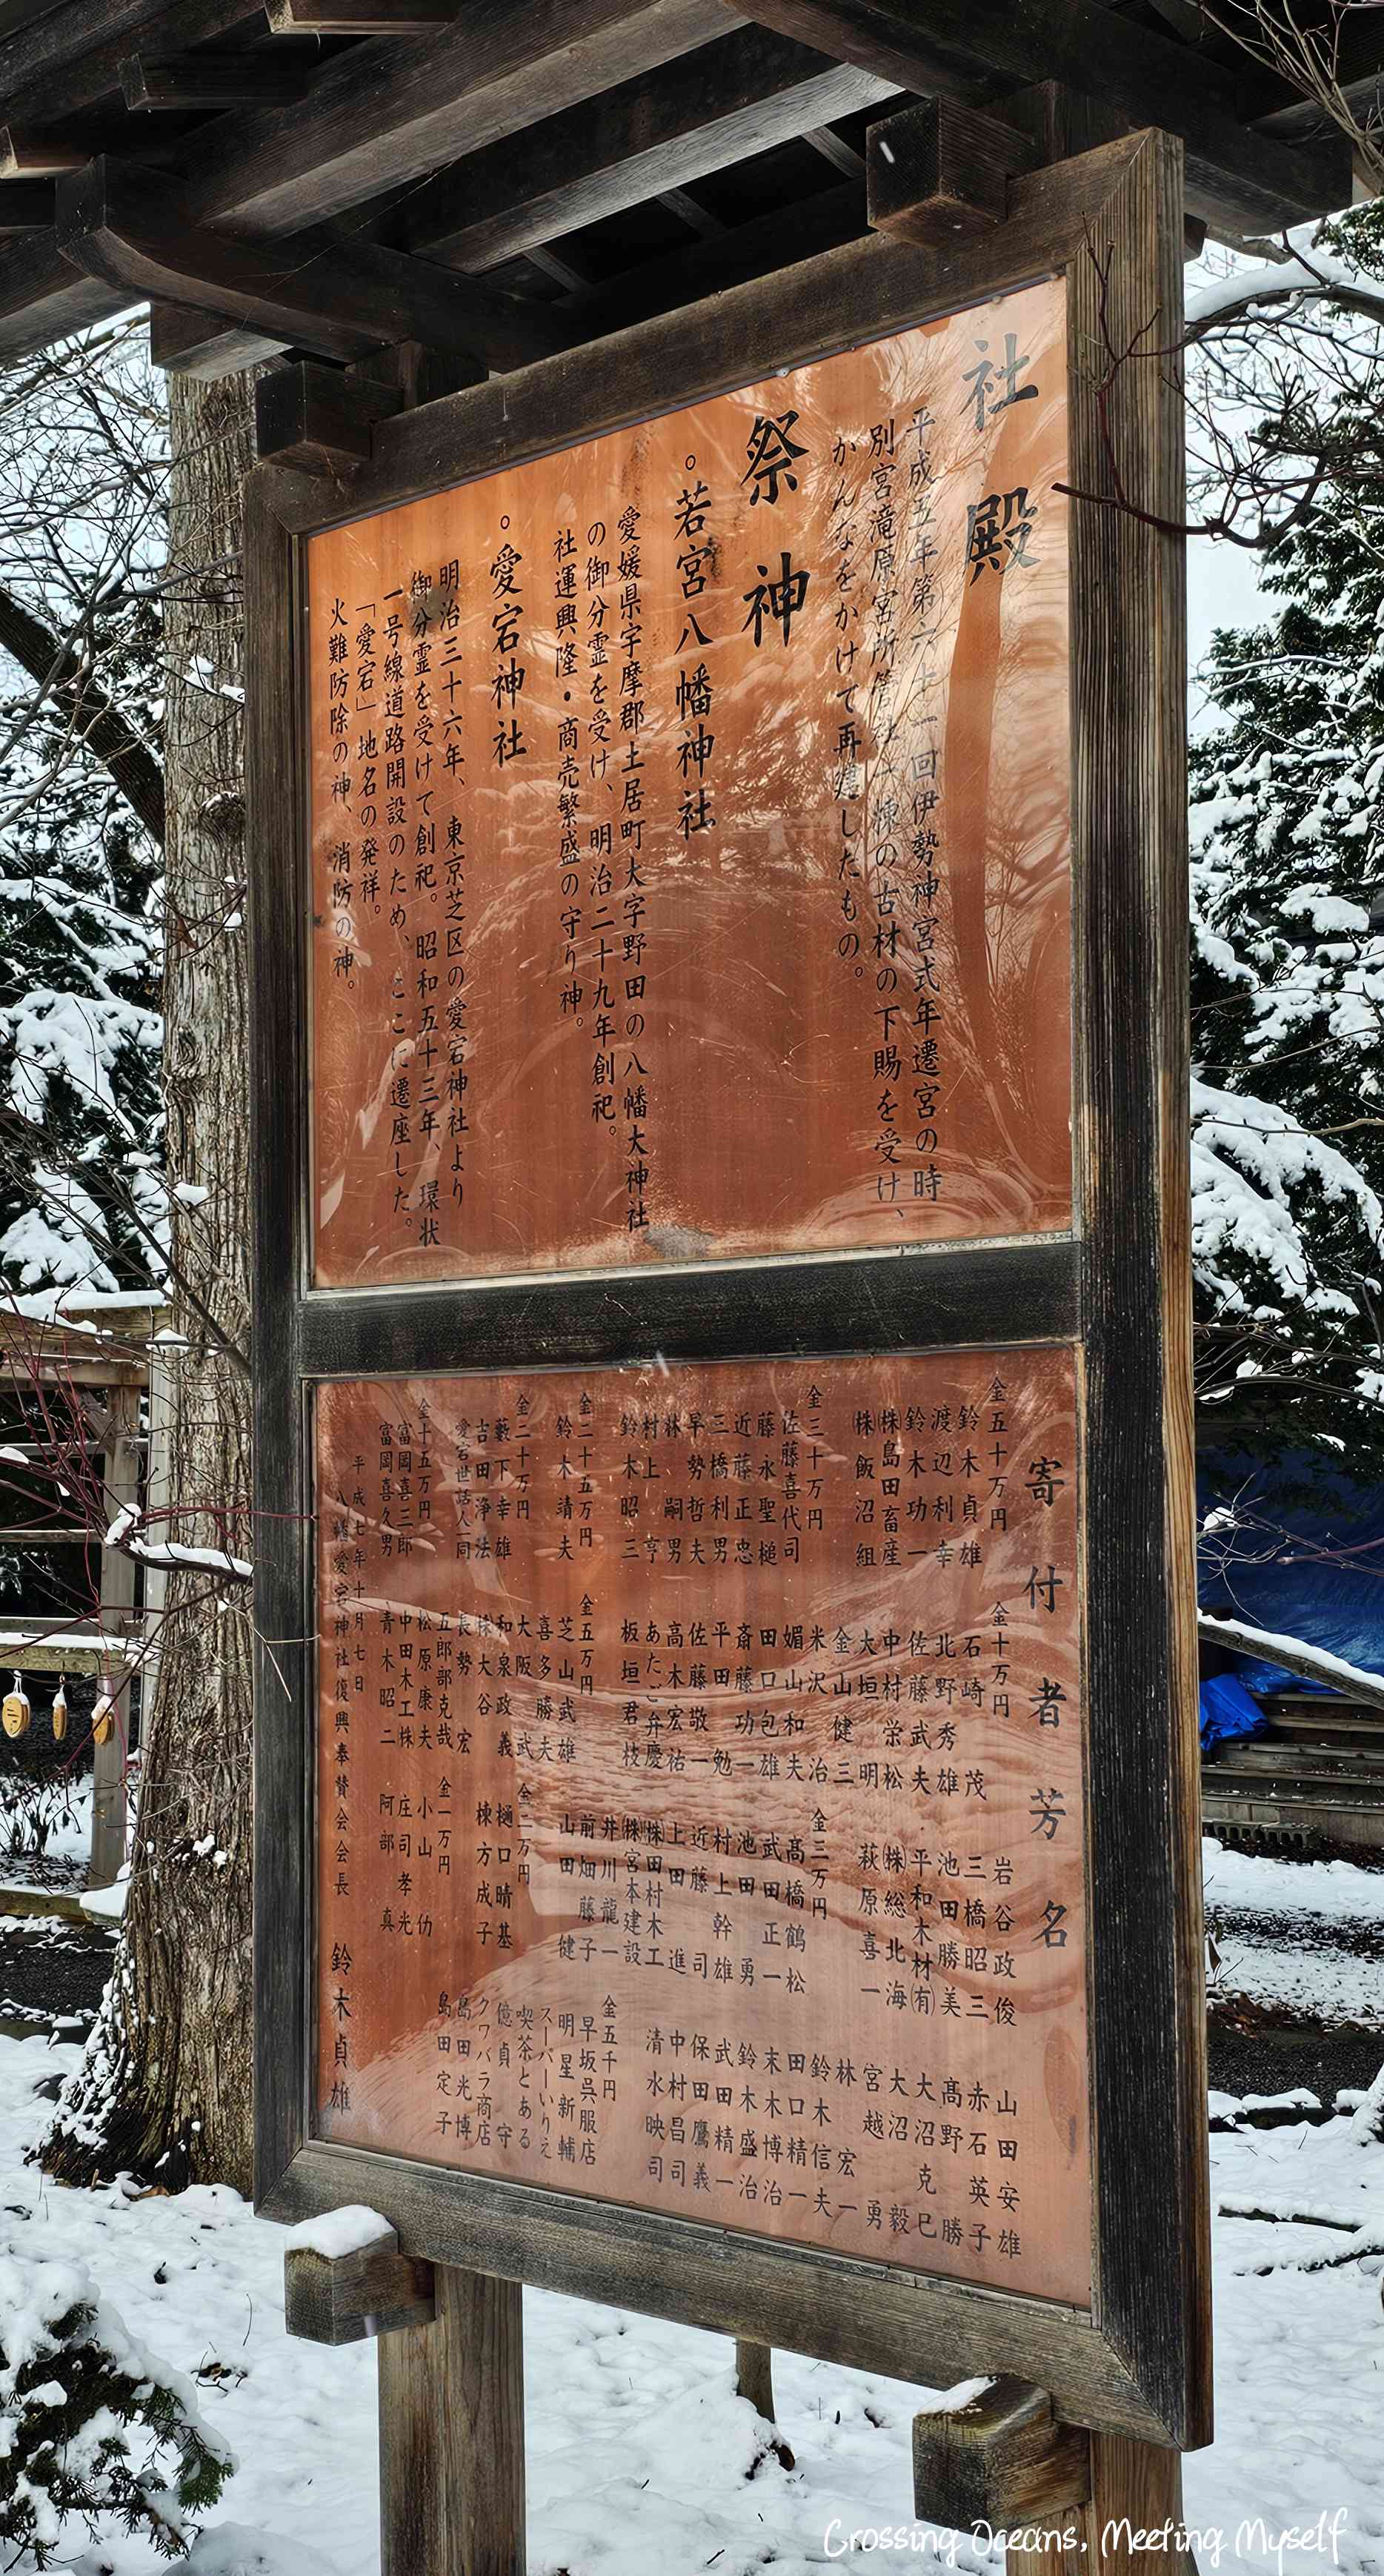 社殿
平成五年第六十一回伊勢神宮式年遷宮の時
別宮滝原宮所管社一棟の古材の下賜を受け、
かんなをかけて再建したもの。
祭神
。若宮八幡神社
愛媛県宇摩郡土居町大字野田の八幡大神社
の御分霊を受け、明治二十九年創祀。
社運興隆・商売繁盛の守り神。
。愛宕神社
明治三十六年、東京芝区の愛宕神社より
御分霊を受けて創祀。昭和五十三年、環状
一号線道路開設のため、ここに遷座した。
「愛宕」地名の発祥。
火難防除の神、消防の神。
寄付者芳名
金五十万円
鈴木貞雄
渡辺利幸
鈴木功一
㈱島田畜産
㈱飯沼組
金三十万円
佐藤喜代司
藤永聖槌
近藤正忠
三橋利男
早勢哲夫
林嗣男
村上亨
鈴木昭三
金二十五万円
鈴木靖夫
金二十万円
藪下幸雄
吉田浄法
愛宕世話人一同
金十五万円
富岡喜三郎
富岡喜久男
金十万円
石崎茂
北野秀雄
佐藤武夫
中村栄松
大垣明
金山健三
米沢治
媚山和夫
田口包雄
斎藤功一
平田勉
佐藤敬一
高木宏祐
あたご弁慶
板垣君枝
金五万円
芝山武雄
喜多勝夫
大阪武
和泉政義
㈱大谷
長勢宏
五郎部克哉
松原康夫
中田木工㈱
青木昭二
岩谷政俊
三橋昭三
池田勝美
平和木材㈲
㈱総北海
萩原喜一
金三万円
髙橋鶴松
武田正一
池田勇
村上幹雄
近藤司
上田進
㈱田村木工
㈱宮本建設
井川龍一
前畑藤子
山田健
金二万円
樋口晴基
棟方成子
金一万円
小山仂
庄司孝光
阿部真
山田安雄
赤石英子
髙野勝
大沼克巳
大沼毅
宮越勇
林宏一
鈴木信夫
田口精一
末木博治
鈴木盛治
武田精一
保田鷹義
中村昌司
清水映司
金五千円
早坂呉服店
明星新輔
スーパーいりえ
喫茶とある
億貞守
クワバラ商店
島田光博
島田定子
平成七年十月七日
八幡愛宕神社復興奉賛会会長 鈴木貞雄
Crossing Oceans, Meeting Myself